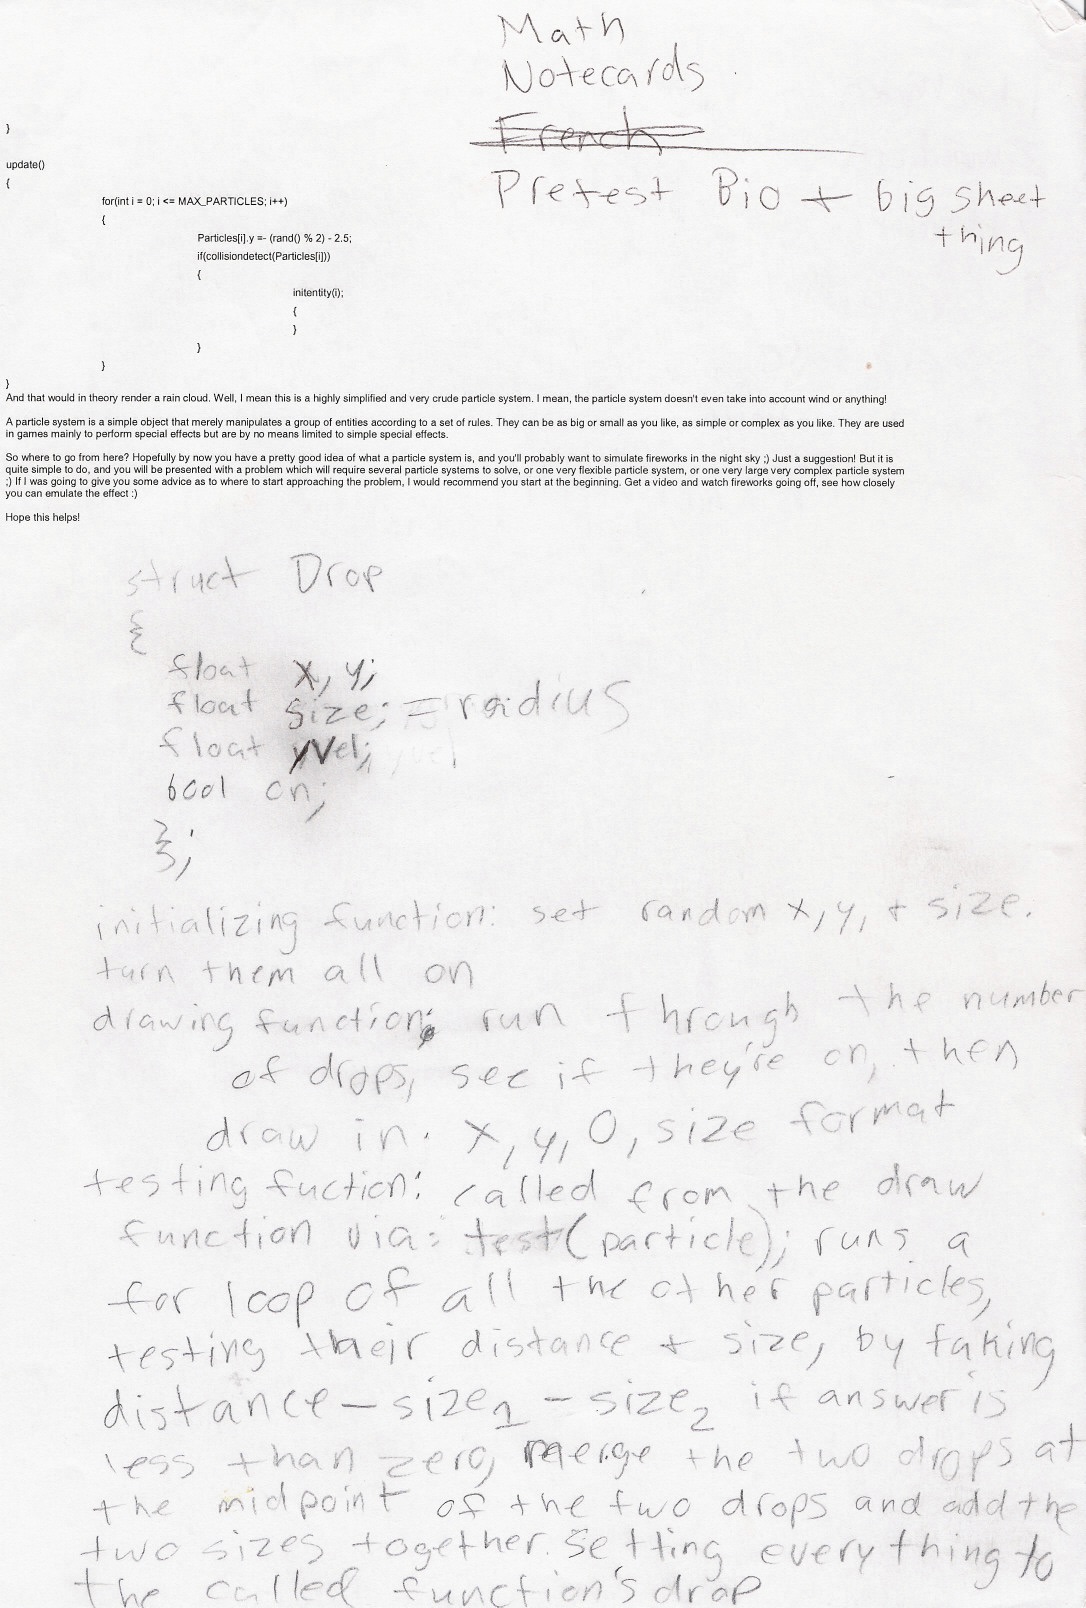 Math
Notecards
French
Pretest Bio + big sheet
thing
}
update()
{
for(int i = 0; i <= MAX_PARTICLES; i++)
{
Particles[i].y =- (rand() % 2) - 2.5;
if(collisiondetect(Particles[i]))
{
initentity(i);
{
}
}
}
}
And that would in theory render a rain cloud. Well, I mean this is a highly simplified and very crude particle system. I mean, the particle system doesn't even take into account wind or anything!
A particle system is a simple object that merely manipulates a group of entities according to a set of rules. They can be as big or small as you like, as simple or complex as you like. They are used
in games mainly to perform special effects but are by no means limited to simple special effects.
So where to go from here? Hopefully by now you have a pretty good idea of what a particle system is, and you'll probably want to simulate fireworks in the night sky ;) Just a suggestion! But it is
quite simple to do, and you will be presented with a problem which will require several particle systems to solve, or one very flexible particle system, or one very large very complex particle system
;) If I was going to give you some advice as to where to start approaching the problem, I would recommend you start at the beginning. Get a video and watch fireworks going off, see how closely
you can emulate the effect :)
Hope this helps!
struct Drop
{
float x, y;
float size; = radius
float yVel;
bool on;
};
initializing function: set random x, y, + size.
turn them all on
drawing function: run through the number
of drops, see if they're on, then
draw in. x, y, 0, size format
testing fuction: called from the draw
function via: test(particle); runs a
for loop of all the other particles,
testing their distance + size, by taking
distance - size1 - size2 if answer is
less than zero, merge the two drops at
the midpoint of the two drops and add the
two sizes together. Setting everything to
the called function's drop